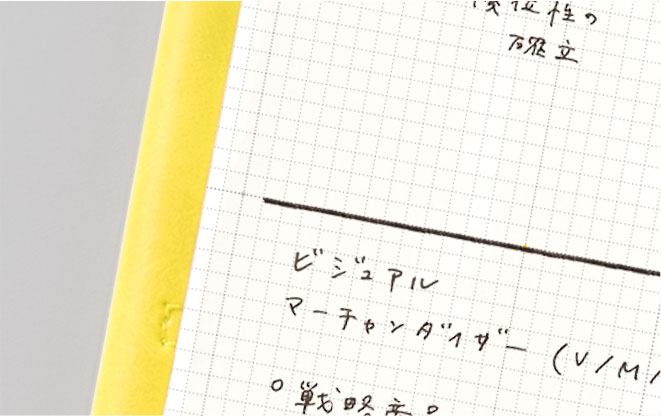 優位性の
確立
ビジュアル
マーチャンダイザー (V/M/
○戦略商品